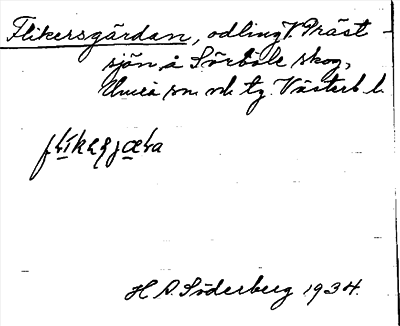 Flikersgärdan, odling V. Präst-
sjön å Sörböle skog,
Umeå sn. o. tg. Västerb. l.
H A. Söderberg 1934.